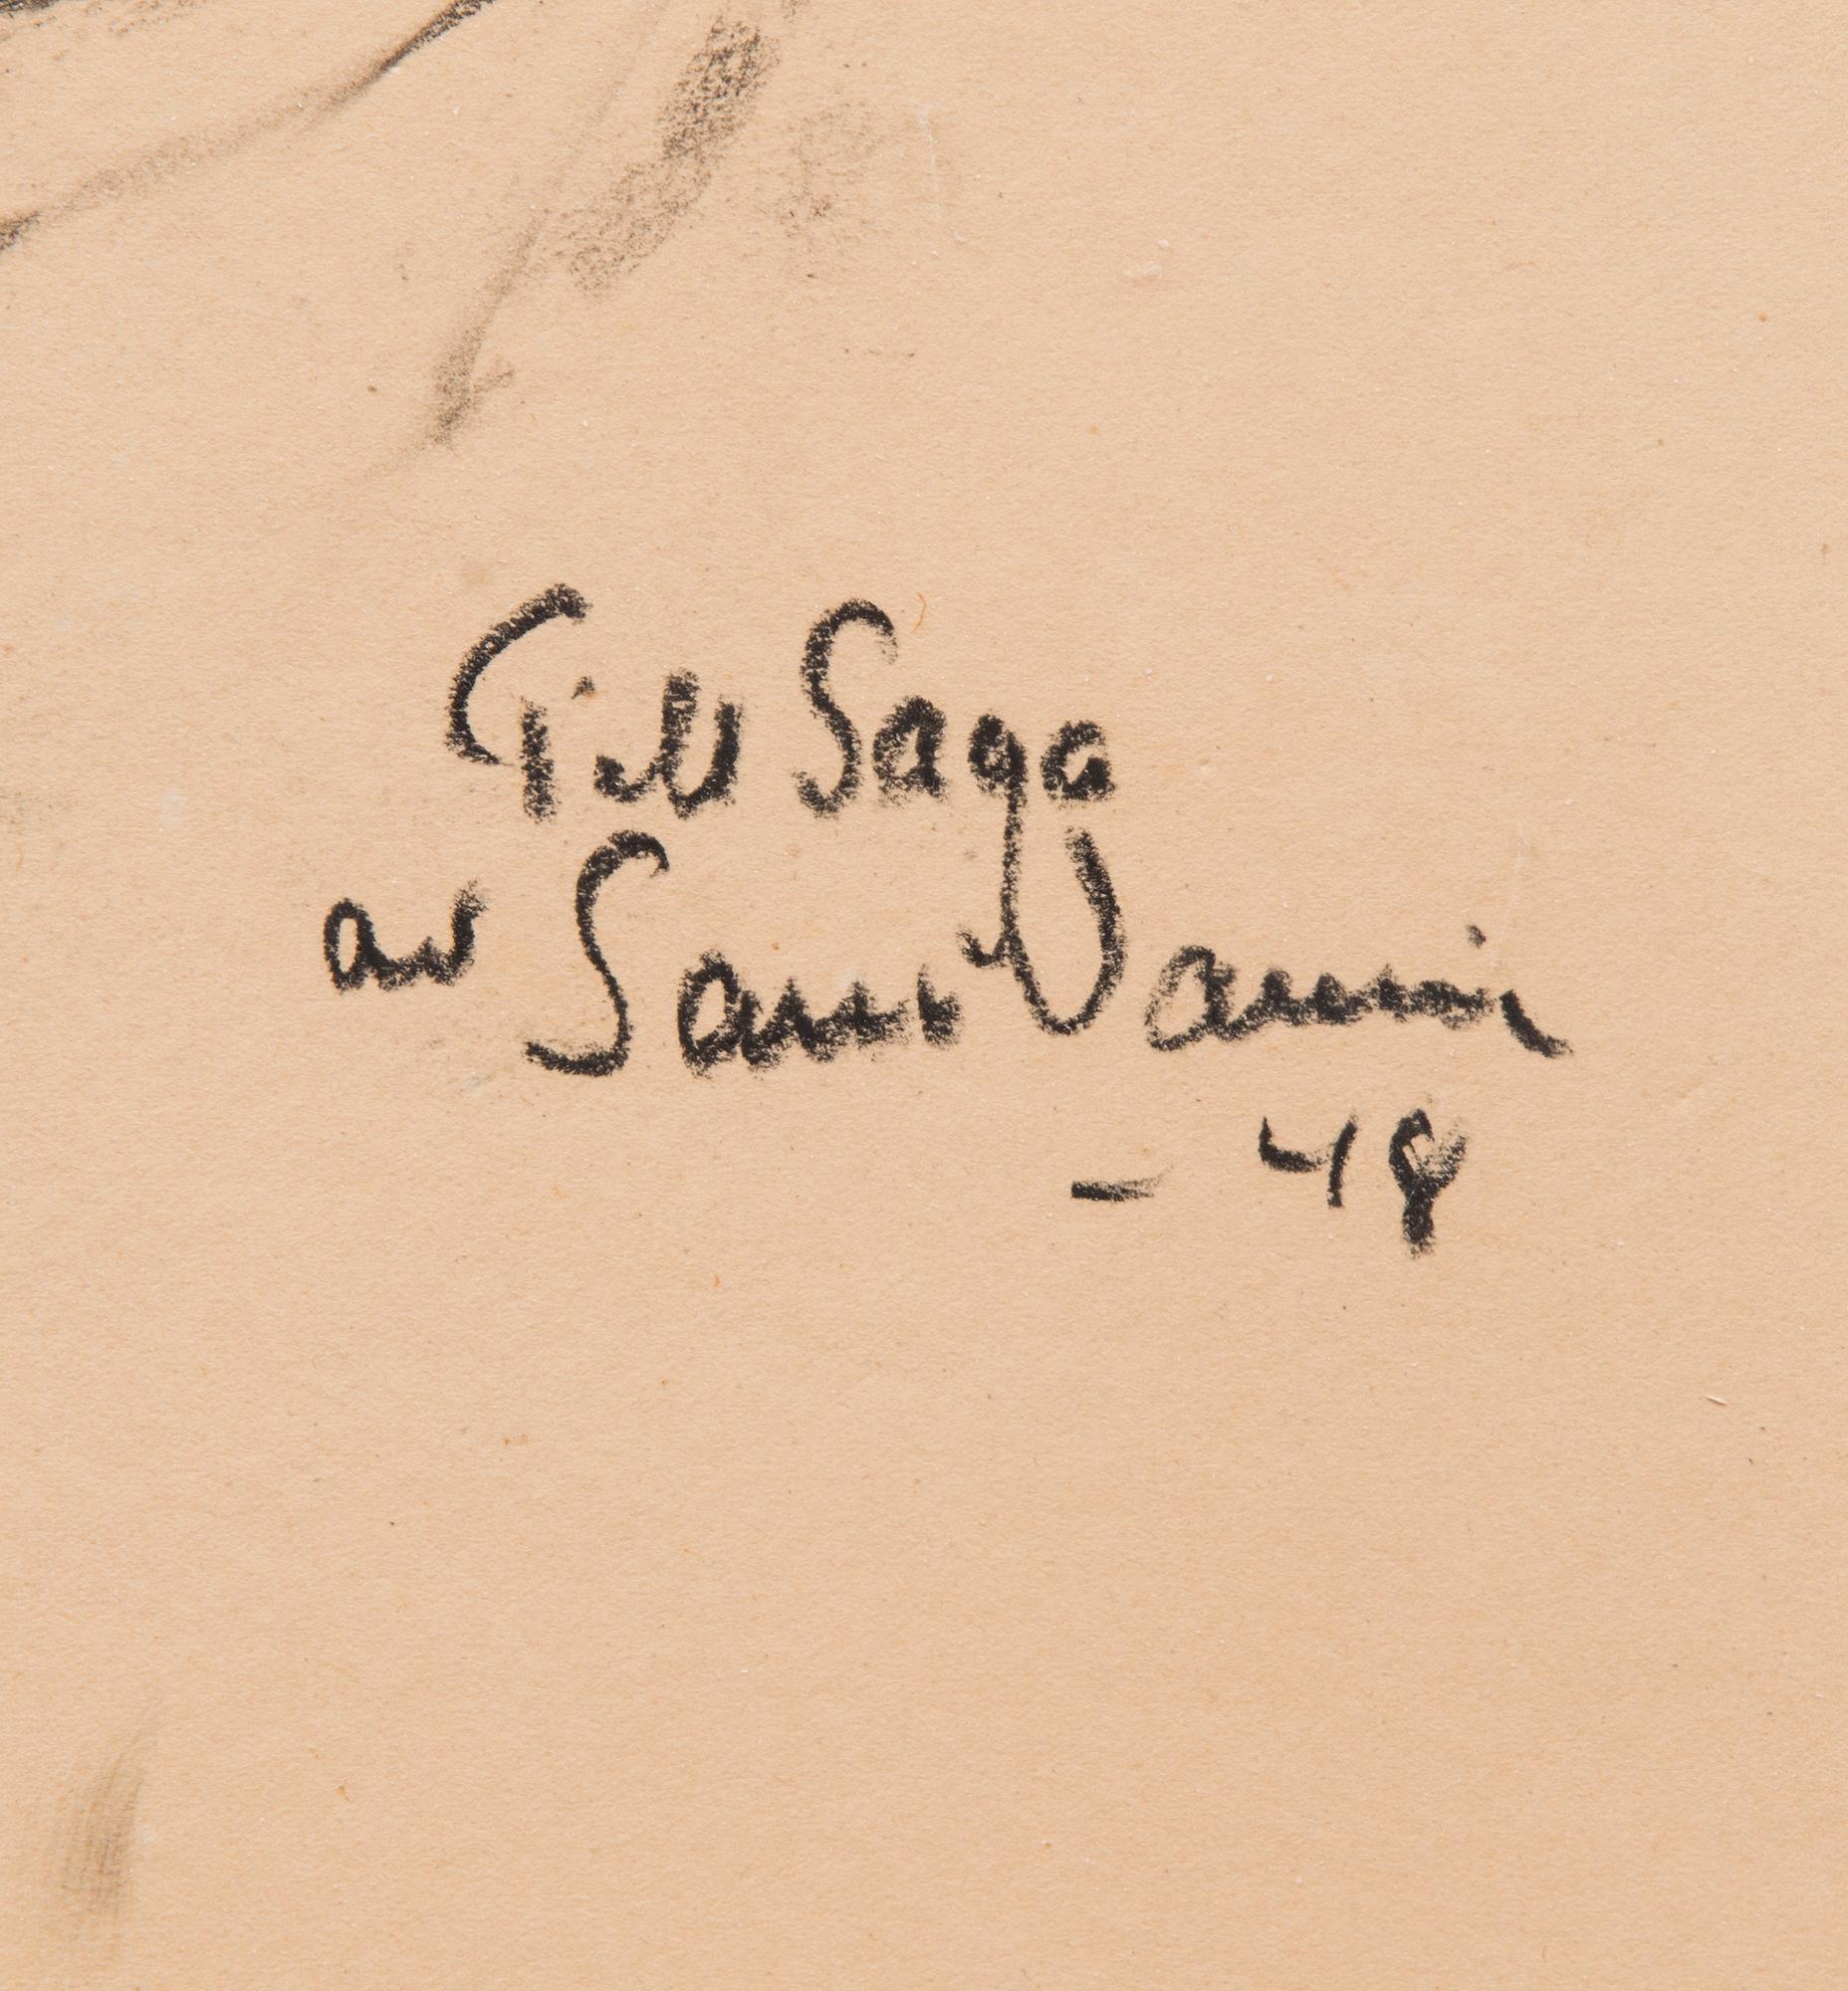 Till Saga
av Sam Vanni
- 48